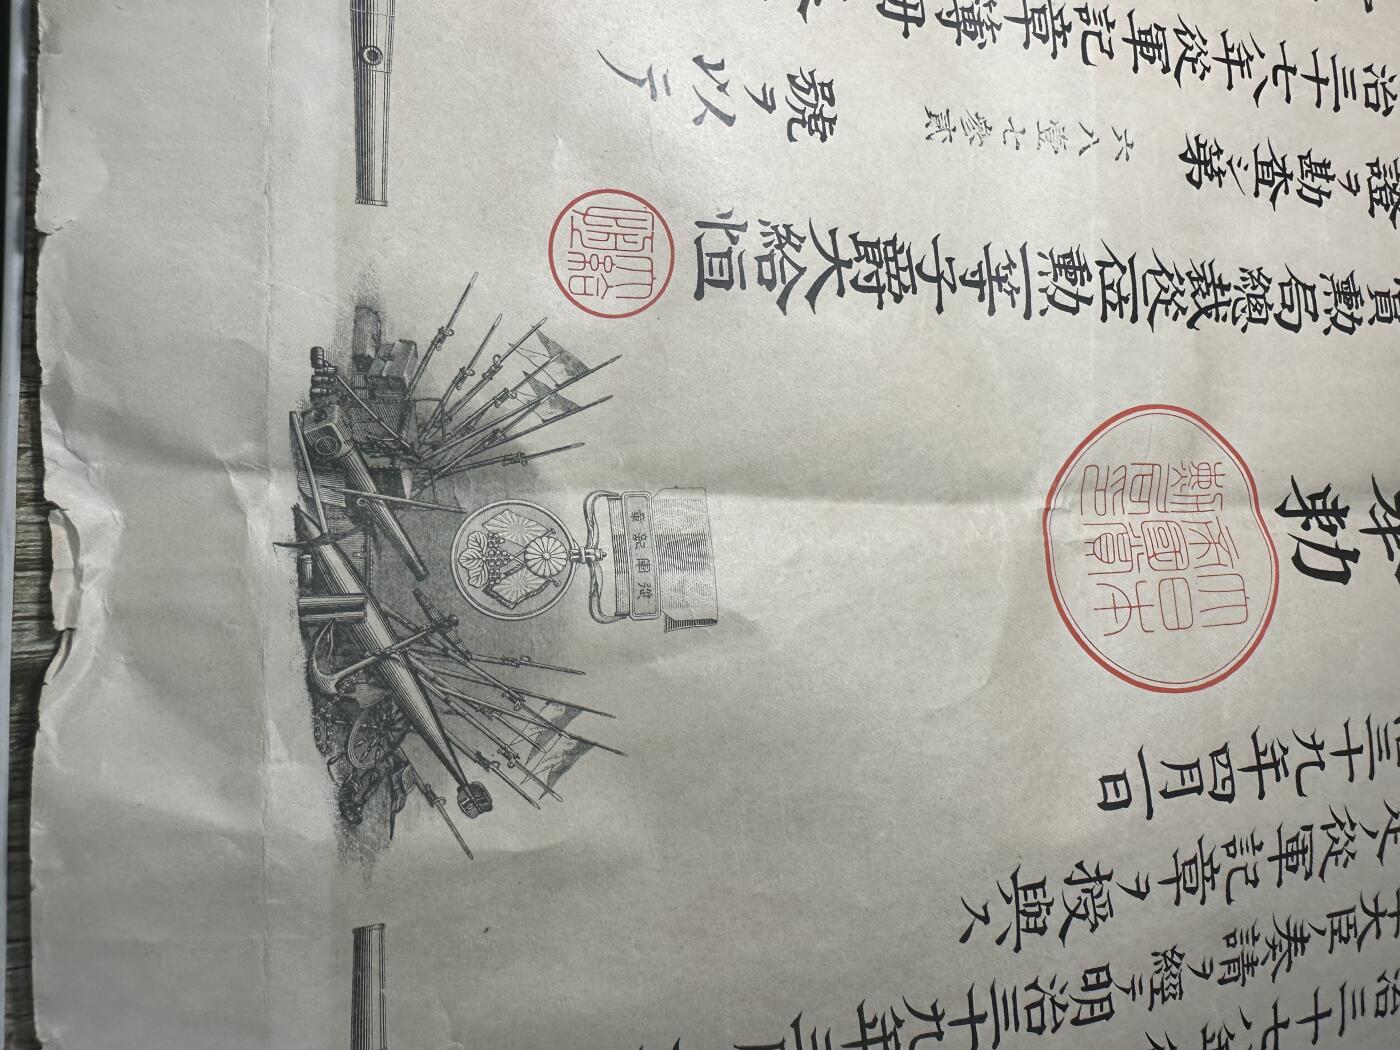 治三十七八年
大臣ノ奏請ヲ經テ明治三十九年三月
從軍記章ヲ授與ス
三十九年四月一日
勅
大日本帝國賞勳局印
從軍記章
賞勳局總裁從二位勳一等子爵大給恒
證ヲ勘査シ第六八壹七參貳號ヲ以テ
治三十七八年從軍記章簿冊